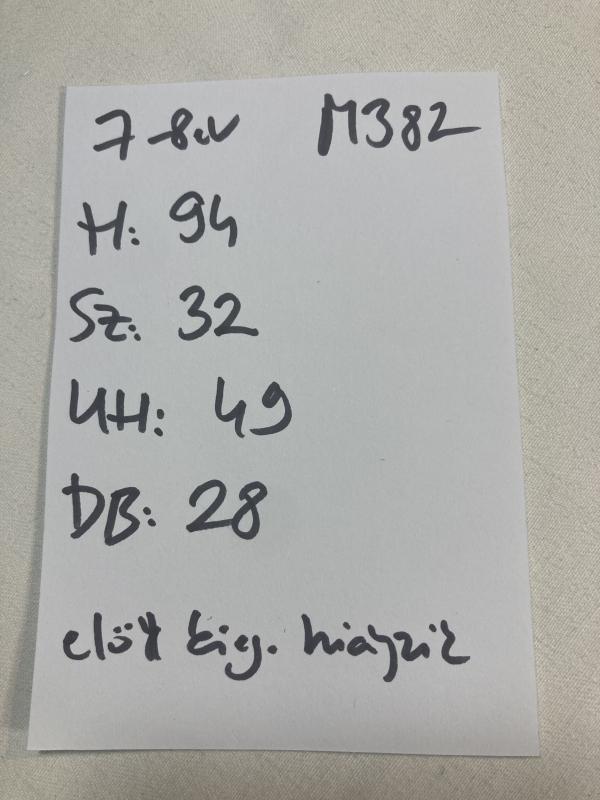 7-8év M382
H: 94
Sz: 32
UH: 49
DB: 28
elöl kig. hiányzik